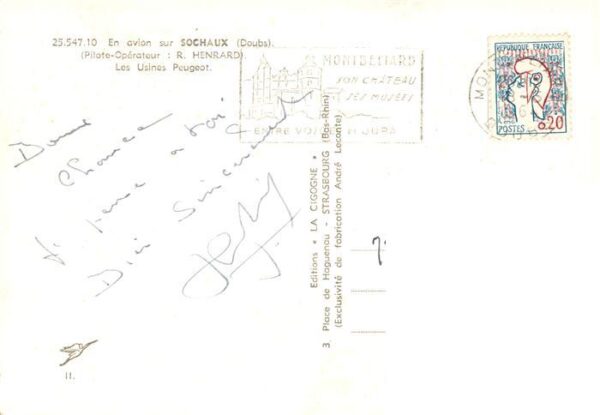 25.547.10 En avion sur SOCHAUX (Doubs).
(Pilote-Opérateur : R. HENRARD)
Les Usines Peugeot.
MONTBELIARD
SON CHÂTEAU
SES MUSÉES
ENTRE VOSGES ET JURA
REPUBLIQUE FRANÇAISE
POSTES 0.20
Bonne
Chance
Je pense a toi
Bien Sincèrement
Editions « LA CIGOGNE »
3, Place de Haguenau - STRASBOURG (Bas-Rhin)
(Exclusivité de fabrication André Leconte)
II.